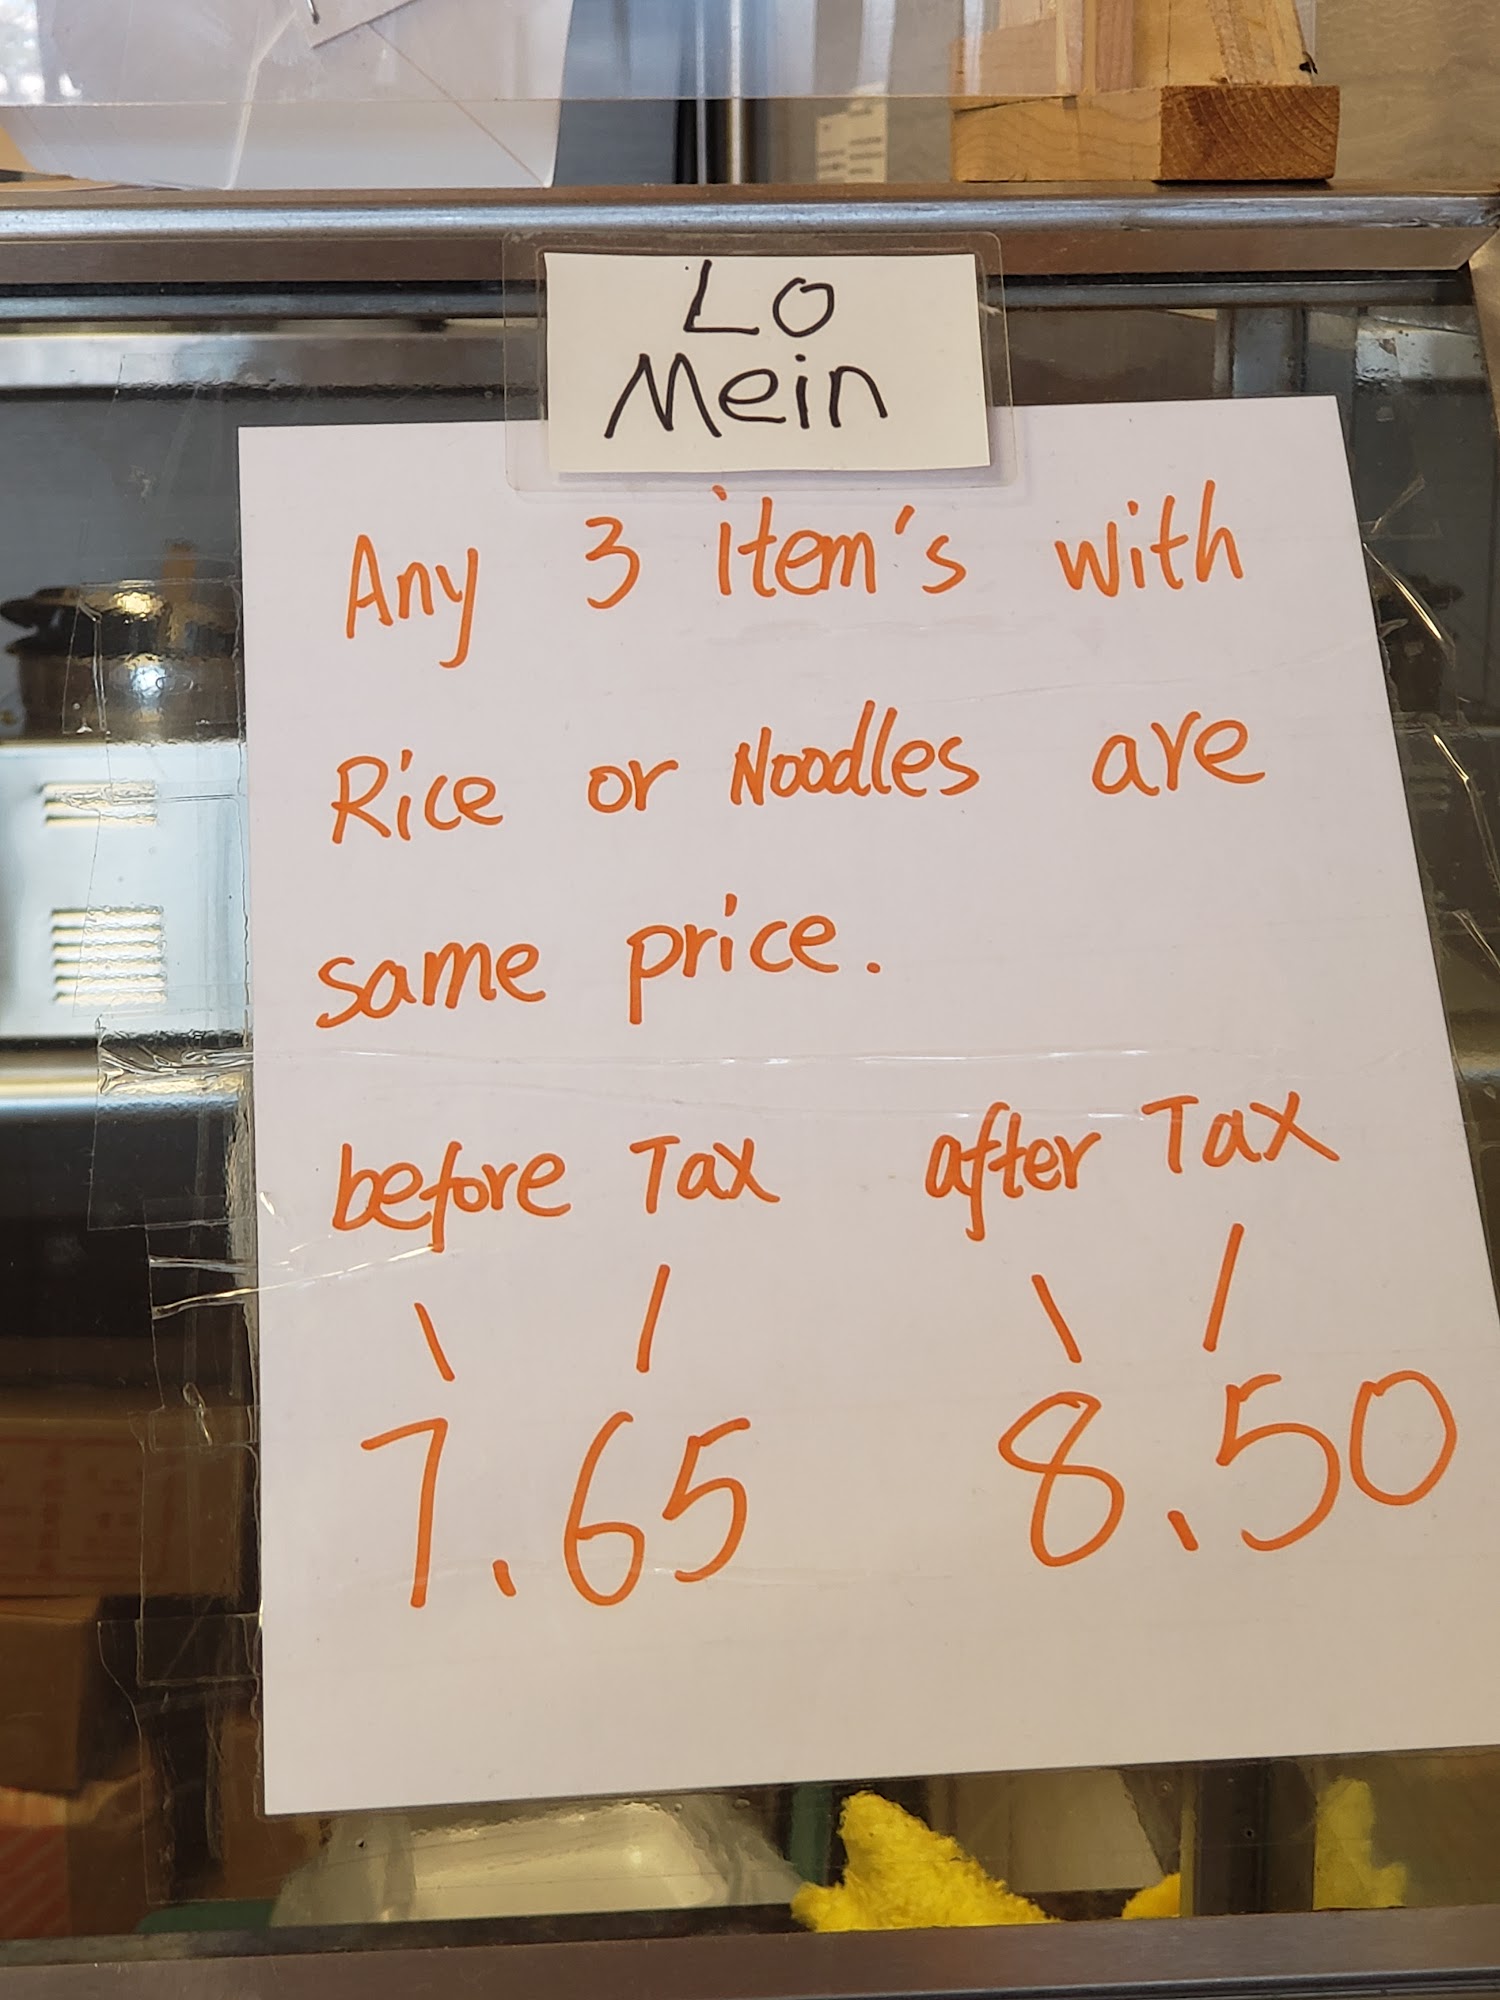 Lo
Mein
Any 3 item's with
Rice or Noodles are
same price.
before Tax after Tax
7.65 8.50